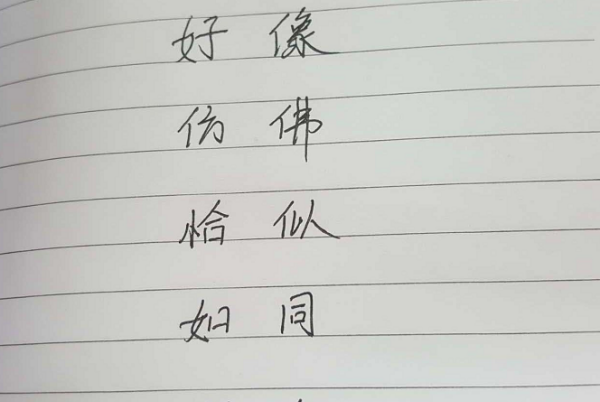 好像
仿佛
恰似
如同